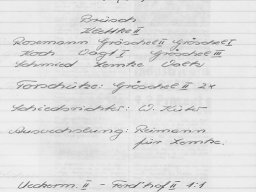 Brüsch
Radtke II
Rosemann Gröschel II Gröschel I
Koch Vogt I Gröschel III
Schmied Lemke Voelz
Torschütze: Gröschel II 2x
Schiedsrichter: W. Küter
Auswechslung: Reimann
für Lemke.
Ueckerm. II - Ferd'hof II 1:1